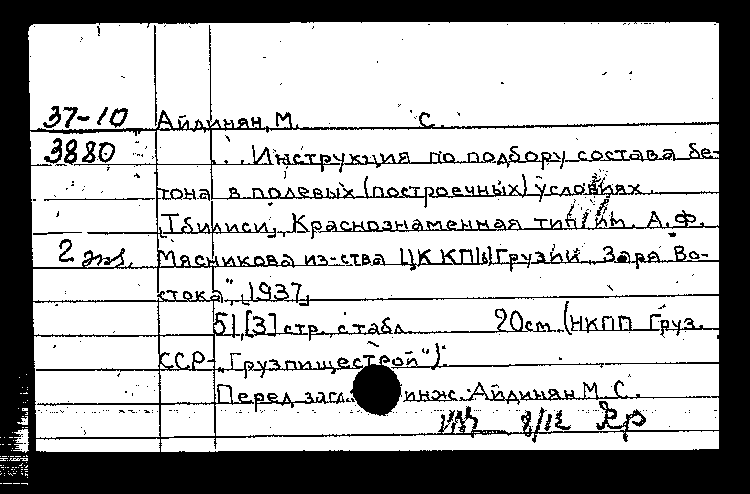 37-10 Айдинян, М. С.
3880 ... Инструкция по подбору состава бе-
тона в полевых (построечных) условиях.
[Тбилиси], Краснознаменная тип. им. А.Ф.
2 экз. Мясникова из-ства ЦК КП(б) Грузии „Заря Во-
стока", [1937]
51,[3] стр. с табл. 20см. (НКПП Груз.
ССР- „Грузпищестрой").
Перед загл. инж. Айдинян М. С.
8/12